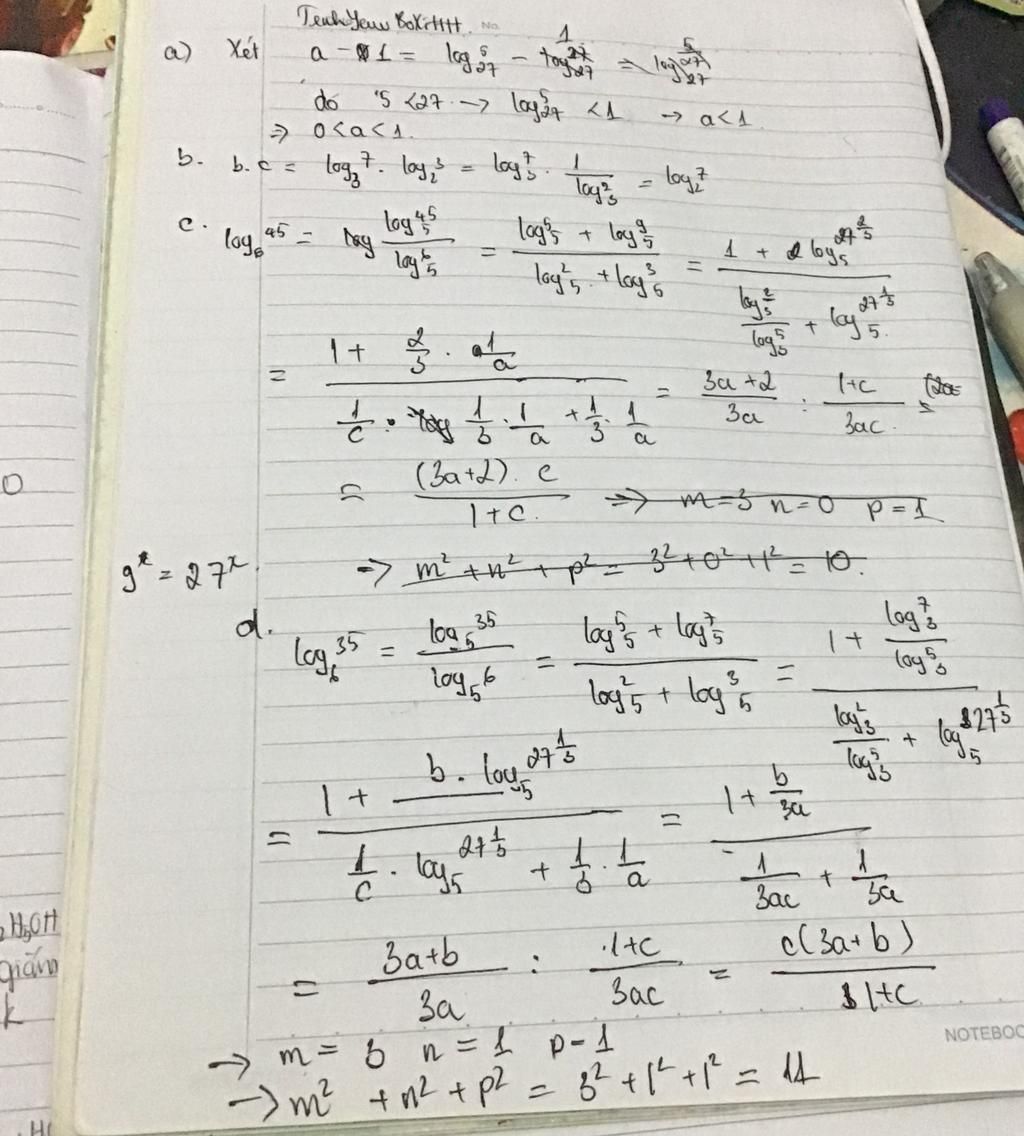 No.
a) Xét a - 1 = log₂₇⁵ - 1 = log
do 5 < 27 → log₂₇⁵ < 1 → a < 1
⇒ 0 < a < 1.
b. b.c = log₃⁷ . log₂³ = log₃⁷ . 1/log₃² = log₂⁷
c. log₆⁴⁵ = log₅⁴⁵/log₅⁶ = (log₅⁵ + log₅⁹)/(log₅² + log₅³) = (1 + log₅^27^(2/3))/(log₃²/log₃⁵ + log₅^27^(1/3))
= (1 + 2/3 . 1/a)/(1/c . 1/3 . 1/a + 1/3 . 1/a) = (3a+2)/3a : (1+c)/3ac =
= (3a+2).c/(1+c) ⇒ m=3 n=0 p=1
9ˣ = 27ˣ
→ m² + n² + p² = 3² + 0² + 1² = 10.
d. log₆³⁵ = log₅³⁵/log₅⁶ = (log₅⁵ + log₅⁷)/(log₅² + log₅³) = (1 + log₃⁷/log₃⁵)/(log₃²/log₃⁵ + log₅^27^(1/3))
= (1 + b . log₅^27^(1/3))/(1/c . log₅^27^(1/3) + 1/3 . 1/a) = (1 + b/3a)/(1/3ac + 1/3a)
= (3a+b)/3a : (1+c)/3ac = c(3a+b)/(1+c)
→ m = 3 n = 1 p = 1
→ m² + n² + p² = 3² + 1² + 1² = 11
NOTEBOO
H₅OH
giấm
k